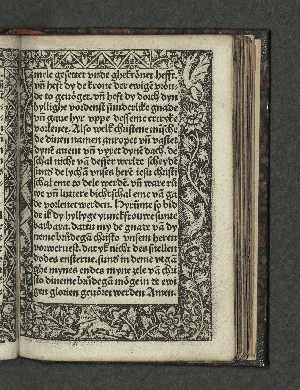 mele gesettet vnde ghekrönet hefft.
vñ hefft dy de krone der ewigē vröu
de to gevöget. vñ hefft dy dorch dyn
hyllighe vordenst sunderlike gnade
vñ gaue hyr vppe desseme ertryke
vorlenet. Also welk cristene minsche
de dinen namen anropet vñ vastet
dynē auent vñ vyret dynē dach. de
schal nicht vā desser werlt scheydē
sunder
schal eme to dele werdē. vñ ware rü
we vñ luttere bicht schal eme vā ga
de vorlenet werden. Hyrumme so bid
de ik dy hyllyge yunckfrouwe sunte
barbara. dattu my de gnade vā dy
neme brüdegā christo vnsem heren
vorweruest. dat yk nicht des snellen
dodes ensterue. sunder in deme
ghe mynes endes myne zele vā chri
sto dineme brüdegā möge in de ewi
gen glorien gevöret werden Amen.